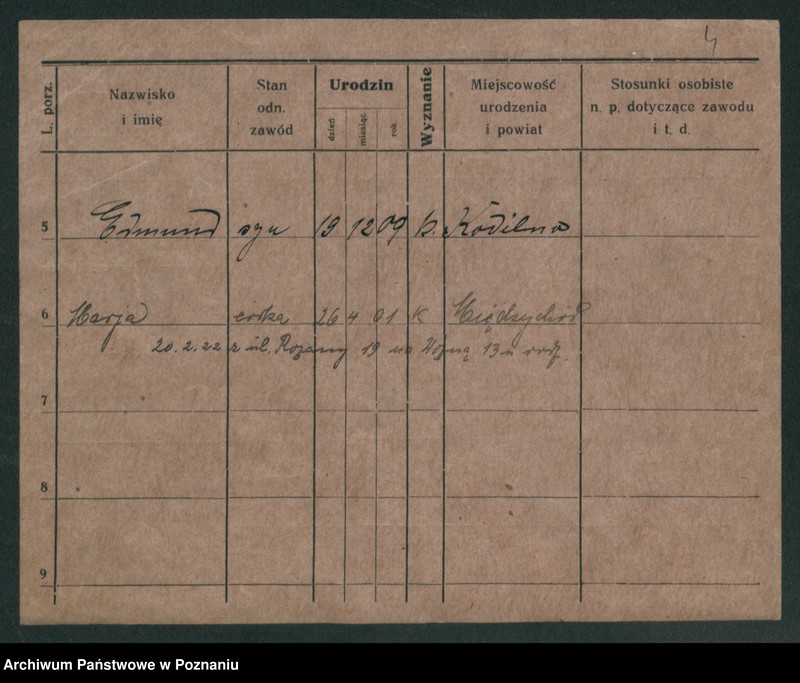 4
L. porz.
Nazwisko
i imię
Stan
odn.
zawód
Urodzin
dzień
miesiąc
rok
Wyznanie
Miejscowość
urodzenia
i powiat
Stosunki osobiste
n. p. dotyczące zawodu
i t. d.
5 Edmund syn 19 12 09 k.
6 Marja córka 26 4 01 K Międzychód
20.2.22 z ul. Rozany 19 na Wozną 13 u
7
8
9
Archiwum Państwowe w Poznaniu